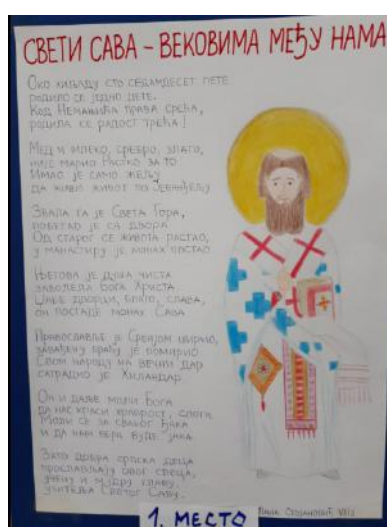 СВЕТИ САВА – ВЕКОВИМА МЕЂУ НАМА
Око хиљаду сто седамдесет пете
родило се једно дете.
Код Немањића права срећа,
родила се радост трећа!
Мед и млеко, сребро, злато,
није марио Растко за то
Имао је само жељу
да живи живот по Јеванђељу
Звала га је Света Гора,
побегао је са двора
Од старог се живота растао,
у манастиру је монах постао
Његова је душа чиста
заволела Бога Христа
дворци, слава,
он постаде монах Сава
Православље је Србијом ширио,
завађену браћу је помирио
Свом народу на вечни дар
саградио је Хиландар
Он и даље моли Бога
да нас краси храброст, слога
Моли се за сваког ђака
и да нам вера буде јака
Зато добра српска деца
прослављају овог свеца,
учену и мудру главу,
учитеља Светог Саву.
1. МЕСТО